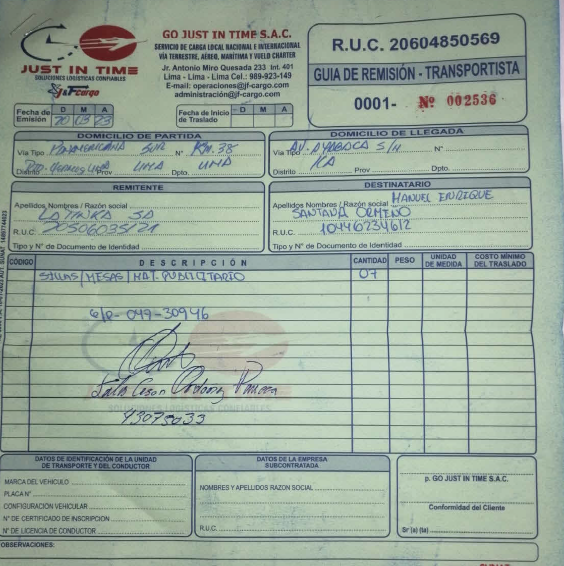 JUST IN TIME
SOLUCIONES LOGISTICAS CONFIABLES
J&F cargo
GO JUST IN TIME S.A.C.
SERVICIO DE CARGA LOCAL NACIONAL E INTERNACIONAL
VIA TERRESTRE, AÉREO, MARÍTIMA Y VUELO CHARTER
Jr. Antonio Miro Quesada 233 Int. 401
Lima - Lima - Lima Cel.: 989-923-149
E-mail: operaciones@jf-cargo.com
administración@jf-cargo.com
R.U.C. 20604850569
GUIA DE REMISIÓN - TRANSPORTISTA
0001- Nº 002536
Fecha de Emisión D M A
20 03 23
Fecha de Inicio de Traslado D M A
DOMICILIO DE PARTIDA
Vía Tipo PANAMERICANA SUR Nº Km. 38
Distrito Prov LIMA Dpto. LIMA
DOMICILIO DE LLEGADA
Vía Tipo AV. AYABACA S/N Nº
Distrito ICA Prov Dpto.
REMITENTE
Apellidos Nombres / Razón social
LA TINKA SA
R.U.C. 20506035121
Tipo y N° de Documento de Identidad
DESTINATARIO
Apellidos Nombres / Razón social MANUEL ENRIQUE
SANTANA ORMEÑO
R.U.C. 10446234612
Tipo y N° de Documento de Identidad
CÓDIGO DESCRIPCIÓN CANTIDAD PESO UNIDAD DE MEDIDA COSTO MÍNIMO DEL TRASLADO
SILLAS / MESAS / MAT. PUBLICITARIO 07
G/R- 049-30946
43075033
DATOS DE IDENTIFICACIÓN DE LA UNIDAD DE TRANSPORTE Y DEL CONDUCTOR
MARCA DEL VEHICULO
PLACA N°
CONFIGURACIÓN VEHICULAR
N° DE CERTIFICADO DE INSCRIPCION
N° DE LICENCIA DE CONDUCTOR
DATOS DE LA EMPRESA SUBCONTRATADA
NOMBRES Y APELLIDOS RAZON SOCIAL
R.U.C.
p. GO JUST IN TIME S.A.C.
Conformidad del Cliente
Sr (a) (ta)
OBSERVACIONES: